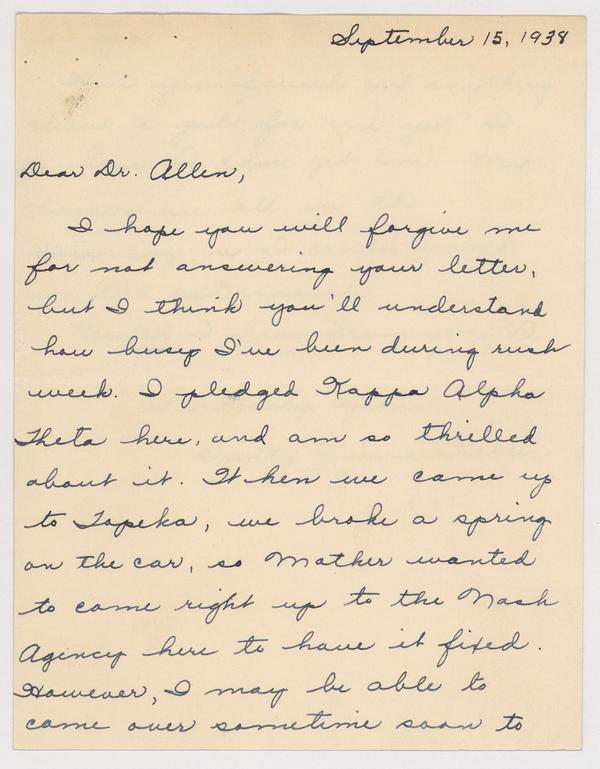 September 15, 1938
Dear Dr. Allen,
I hope you will forgive me
for not answering your letter,
but I think you'll understand
how busy I've been during rush
week. I pledged Kappa Alpha
Theta here, and am so thrilled
about it. When we came up
to Topeka, we broke a spring
on the car, so Mother wanted
to come right up to the Nash
Agency here to have it fixed.
However, I may be able to
come over sometime soon to